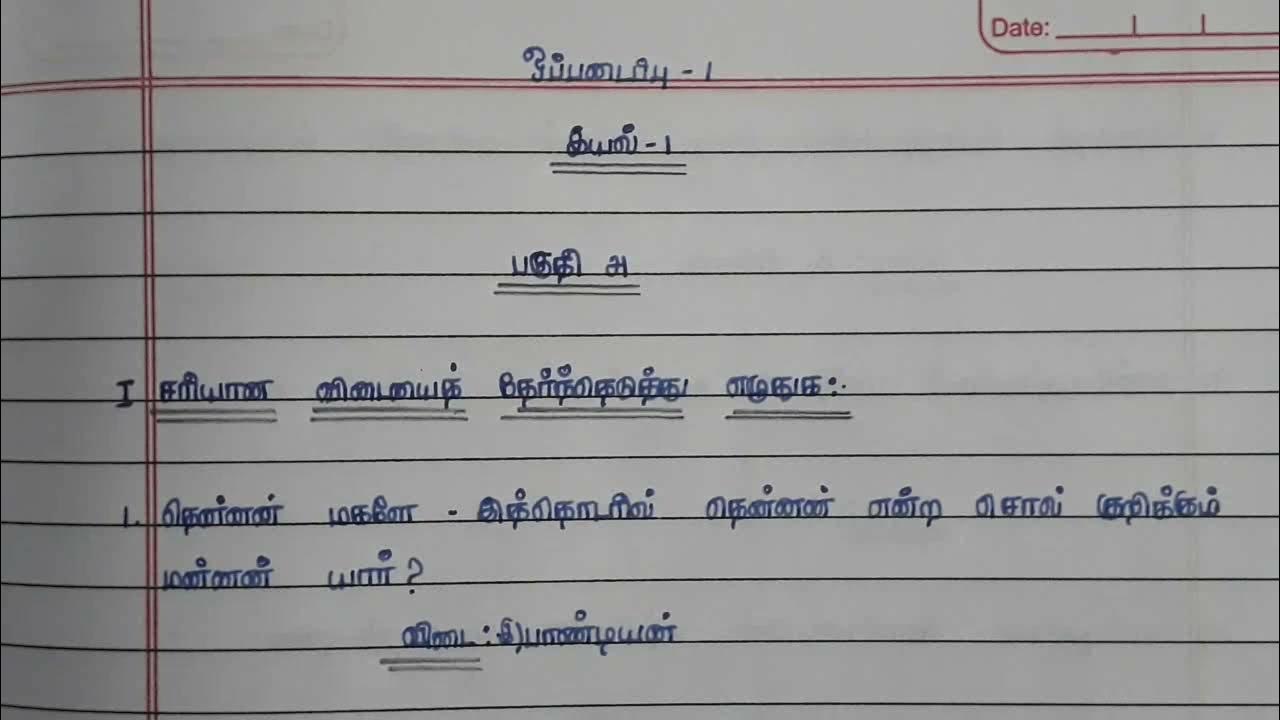 Date:
ஒப்படைப்பு - 1
இயல் - 1
பகுதி அ
I சரியான விடையைத் தேர்ந்தெடுத்து எழுதுக:-
1. தென்னன் மகளே - இத்தொடரில் தென்னன் என்ற சொல் குறிக்கும்
மன்னன் யார்?
விடை: இ) பாண்டியன்